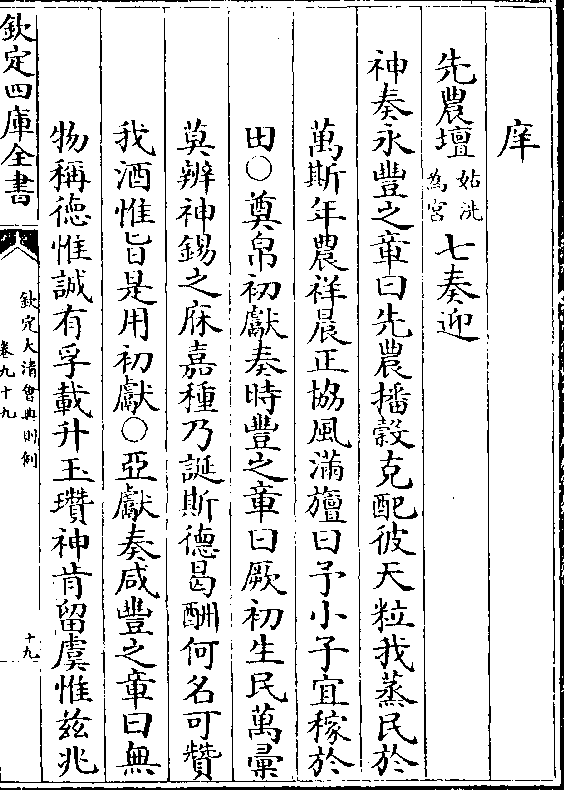 庠
先農壇姑洗為宮七奏迎
神奏永豐之章曰先農播穀克配彼天粒我蒸民於
萬斯年農祥晨正協風滿旜曰予小子宜稼於
田○奠帛初獻奏時豐之章曰厥初生民萬彚
莫辨神錫之庥嘉種乃誕斯德曷酬何名可贊
我酒惟旨是用初獻○亞獻奏咸豐之章曰無
物稱德惟誠有孚載升玉瓚神肯留虞惟兹兆
欽定四庫全書
欽定大清會典則例
卷九十九
十九